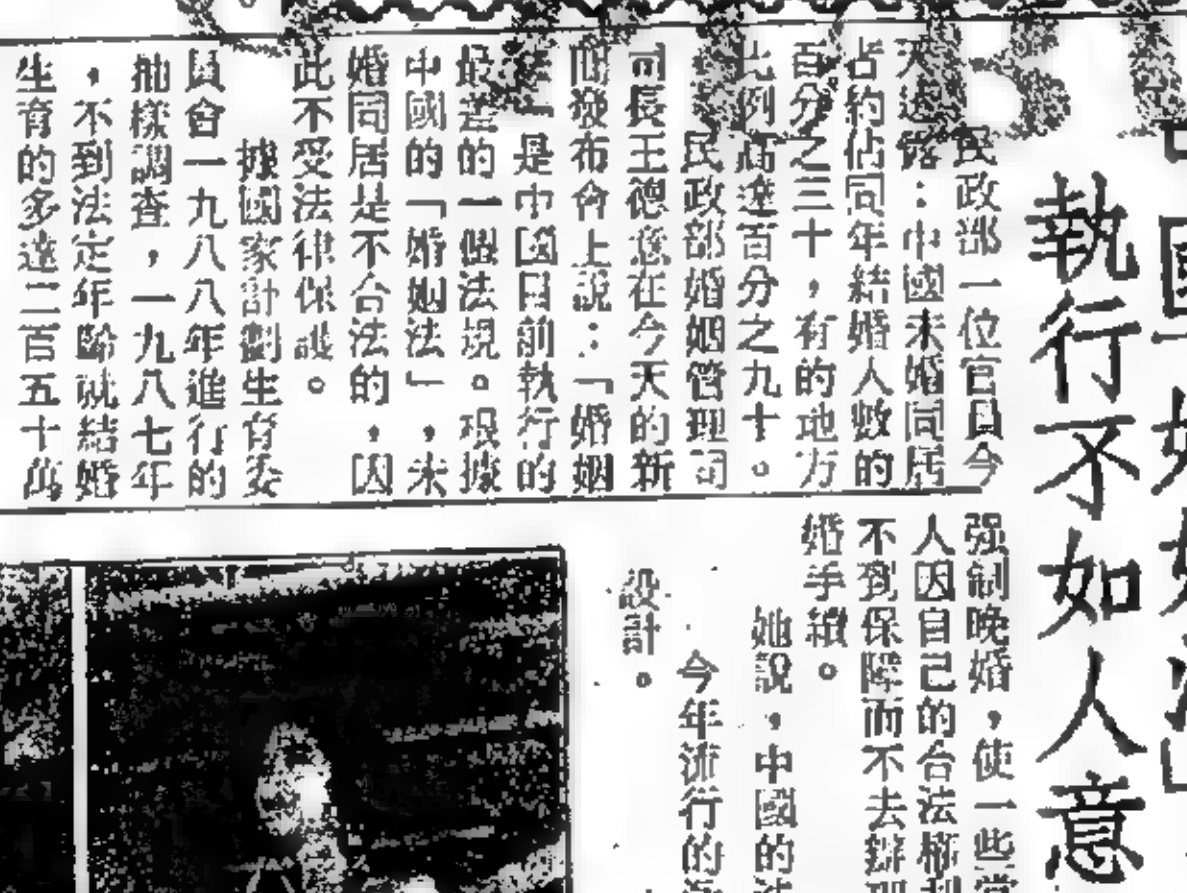 執行不如人意
民政部一位官員今
天透露：中國未婚同居
占約佔同年結婚人數的
百分之三十，有的地方
比例高達百分之九十。
民政部婚姻管理司
司長王德意在今天的新
聞發布會上說：「婚姻
法」是中國目前執行的
最差的一個法規。根據
中國的「婚姻法」，未
婚同居是不合法的，因
此不受法律保護。
據國家計劃生育委
員會一九八八年進行的
抽樣調查，一九八七年
，不到法定年齡就結婚
生育的多達二百五十萬
强制晚婚，使一些當
人因自己的合法權利
不到保障而不去辦理
婚手續。
她說，中國的
今年流行的
設計。